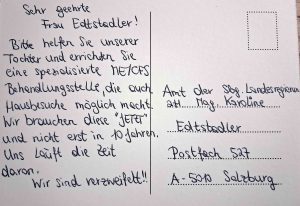 Sehr geehrte
Frau Edtstadler!
Bitte helfen Sie unserer
Tochter und errichten Sie
eine spezialisierte ME/CFS
Behandlungsstelle, die auch
Hausbesuche möglich macht.
Wir brauchen diese "JETZT"
und nicht erst in 10 Jahren.
Uns läuft die Zeit
davon.
Wir sind verzweifelt!!
Amt der Sbg. Landesregierung
Mag. Karoline
Edtstadler
Postfach 527
A-5010 Salzburg